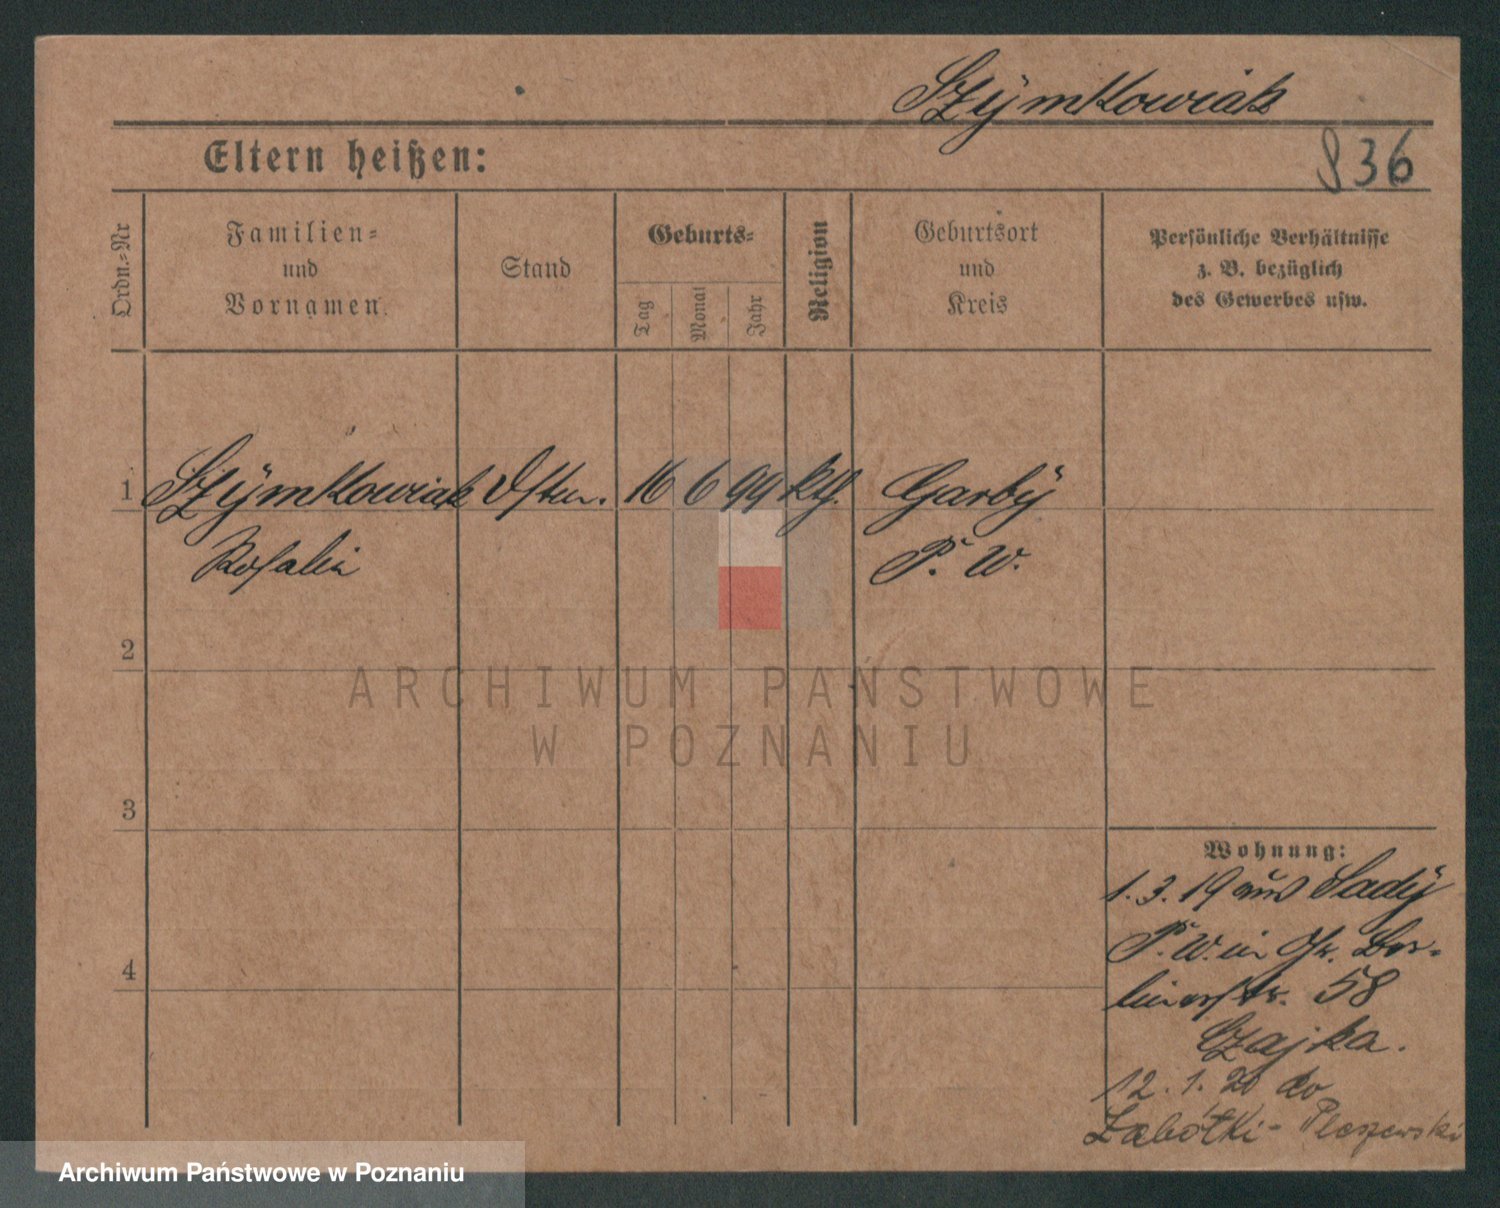 Szÿmkowiak
Eltern heißen:
836
Ordn.-Nr
Familien-
und
Vornamen.
Stand
Geburts-
Tag
Monat
Jahr
Religion
Geburtsort
und
Kreis
Persönliche Verhältnisse
z. B. bezüglich
des Gewerbes usw.
1 Szÿmkowiak 16 6 99 kth. Garbÿ
Rosalia P. W.
2
ARCHIWUM PAŃSTWOWE
W POZNANIU
3
Wohnung:
1.3.19 aus Sadÿ
P. W. in Gr. Ber-
linerstr. 58
Czajka.
4
12.1.20 do
Pleszewski
Archiwum Państwowe w Poznaniu